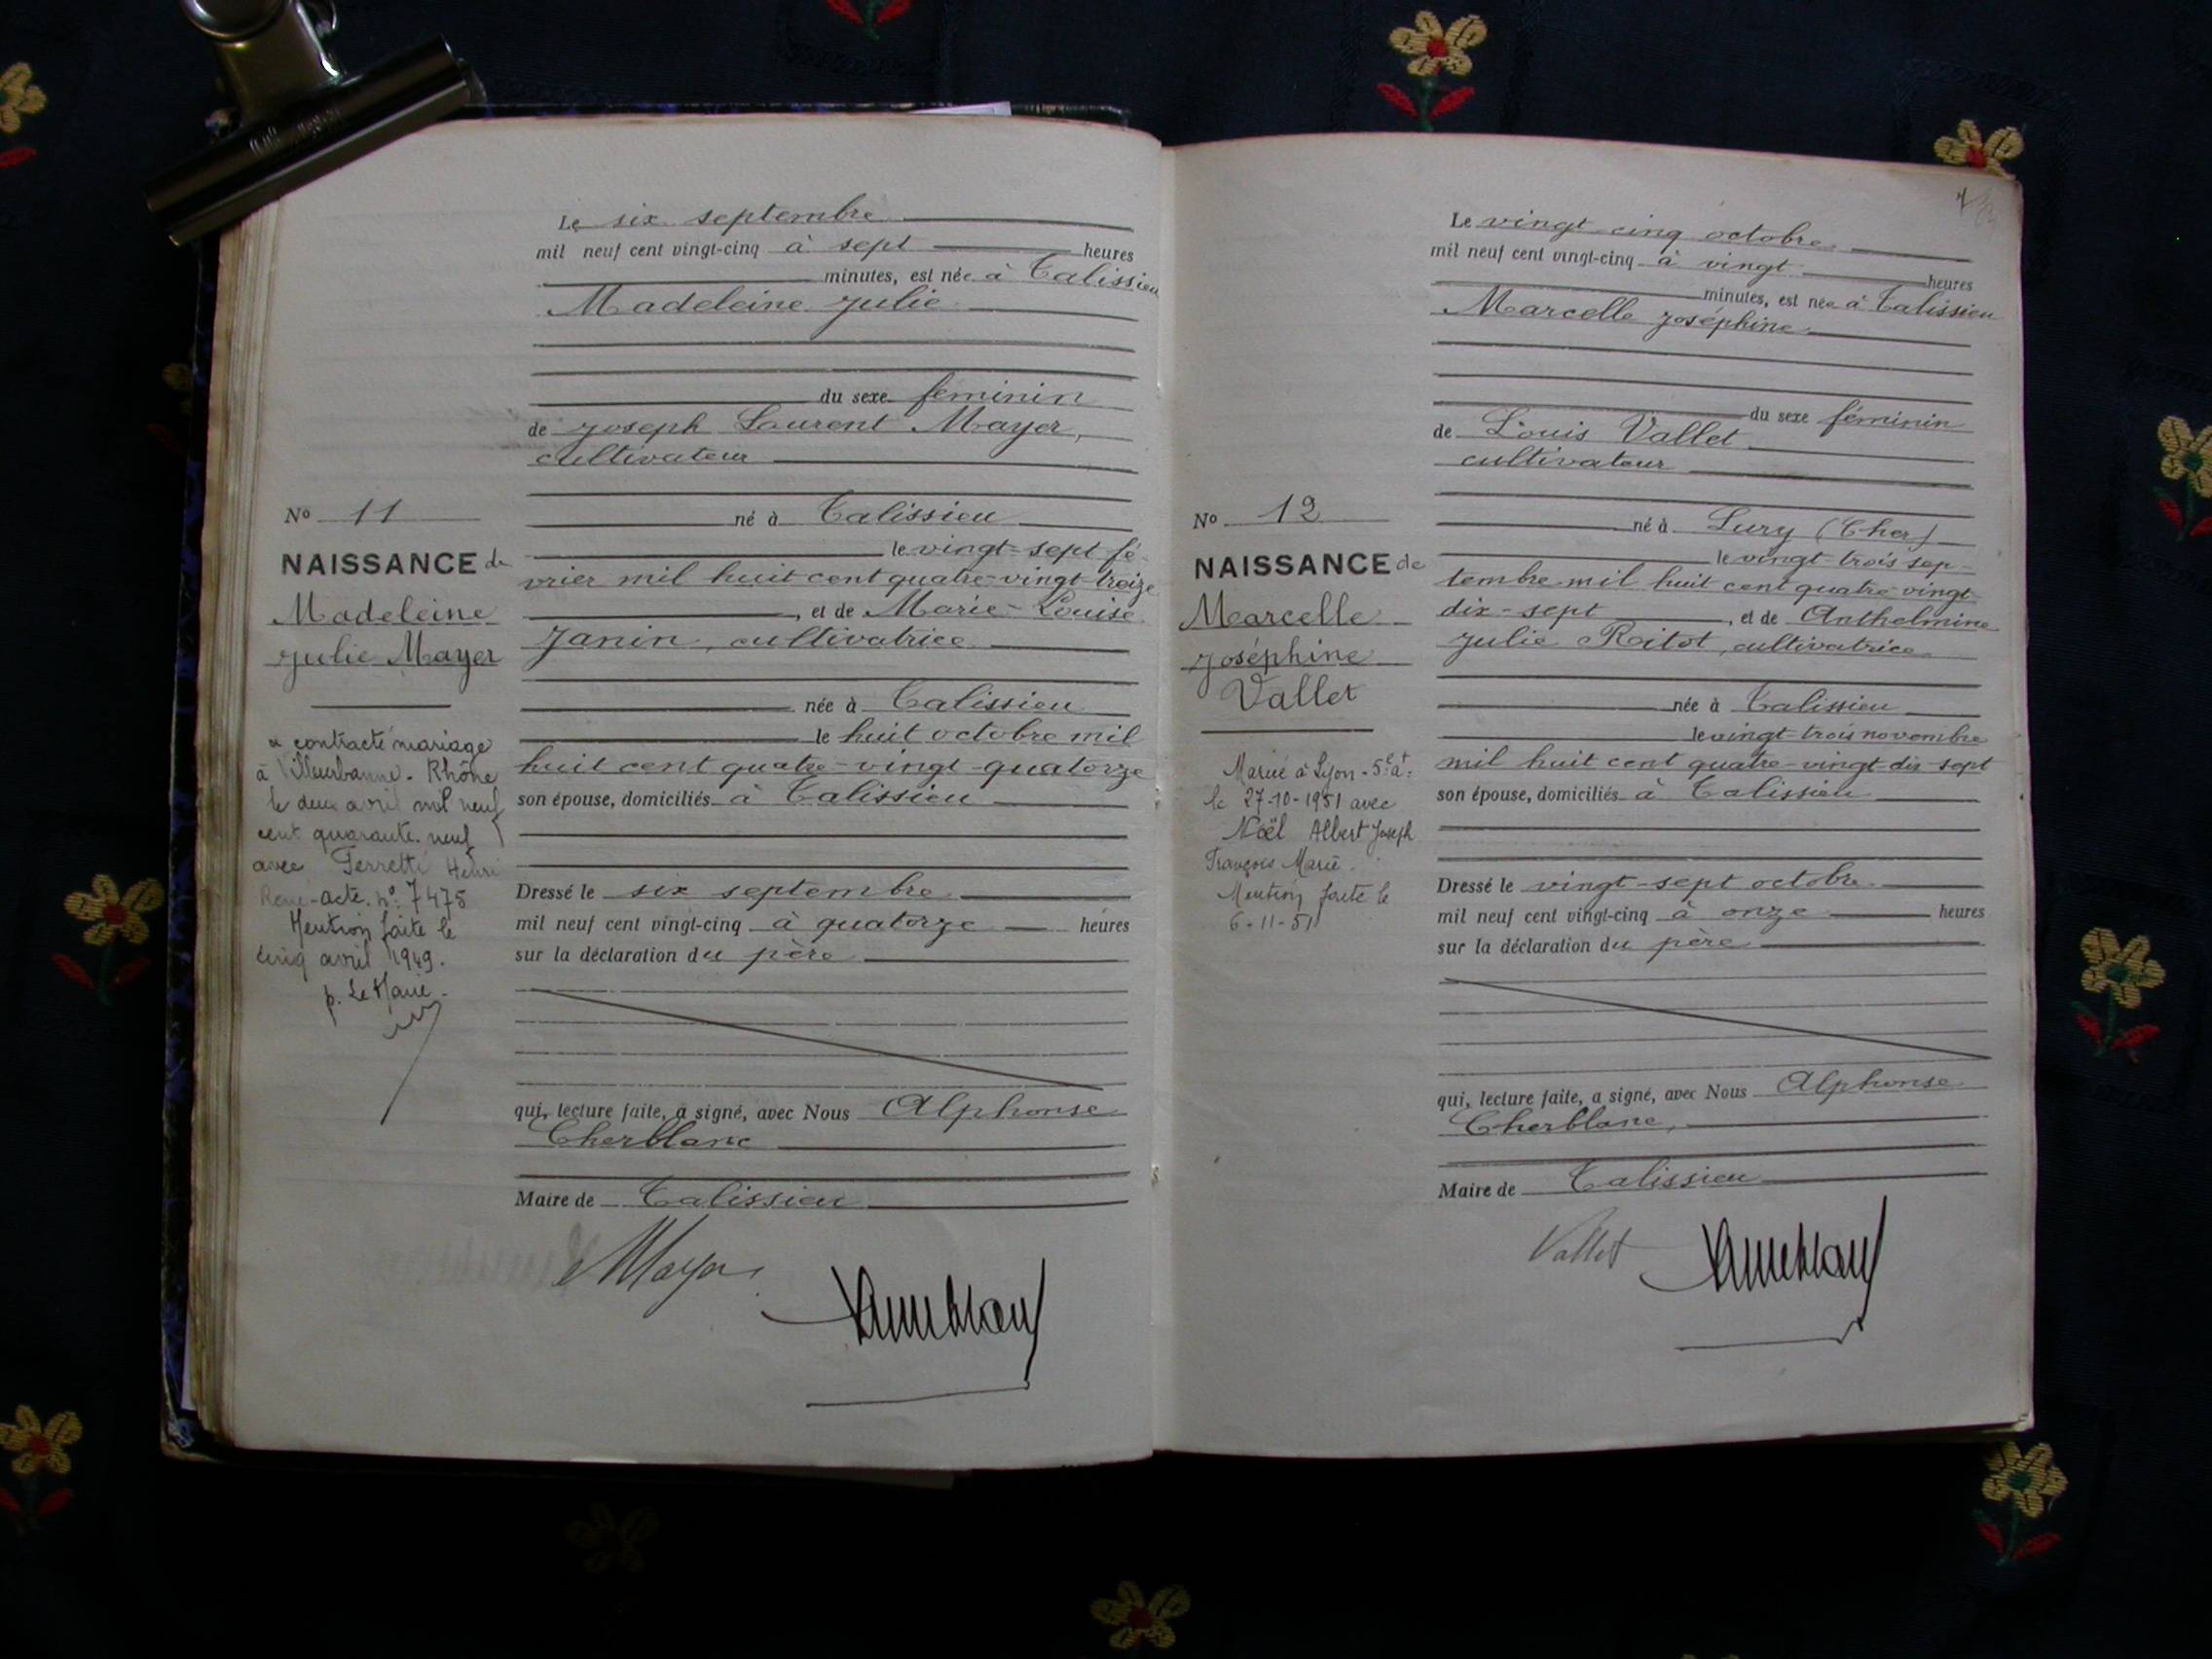 Le six septembre
mil neuf cent vingt-cinq à sept heures
minutes, est née à Talissieu
Madeleine Julie
du sexe féminin
de Joseph Laurent Mayer,
cultivateur
né à Talissieu
le vingt-sept fé-
vrier mil huit cent quatre-vingt-treize
, et de Marie-Louise
Janin, cultivatrice
née à Talissieu
le huit octobre mil
huit cent quatre-vingt-quatorze
son épouse, domiciliés à Talissieu
Dressé le six septembre
mil neuf cent vingt-cinq à quatorze heures
sur la déclaration du père
qui, lecture faite, a signé, avec Nous Alphonse
Cherblanc
Maire de Talissieu
Mayer
No 11
NAISSANCE de
Madeleine
Julie Mayer
a contracté mariage
à Villeurbanne - Rhône
le deux avril mil neuf
cent quarante-neuf
avec Ferretti Henri
René - acte n° 7475
Mention faite le
cinq avril 1949.
p. Le Maire.
Le vingt-cinq octobre
mil neuf cent vingt-cinq à vingt heures
minutes, est née à Talissieu
Marcelle Joséphine
du sexe féminin
de Louis Vallet
cultivateur
né à Lury (Cher)
le vingt-trois sep-
tembre mil huit cent quatre-vingt-
dix-sept, et de Anthelmine
Julie Ritot, cultivatrice
née à Talissieu
le vingt-trois novembre
mil huit cent quatre-vingt-dix-sept
son épouse, domiciliés à Talissieu
Dressé le vingt-sept octobre
mil neuf cent vingt-cinq à onze heures
sur la déclaration du père
qui, lecture faite, a signé, avec Nous Alphonse
Cherblanc,
Maire de Talissieu
Vallet
No 12
NAISSANCE de
Marcelle
Joséphine
Vallet
Mariée à Lyon - 5e at.
le 27-10-1951 avec
Noël Albert Joseph
François Marie.
Mention faite le
6-11-51